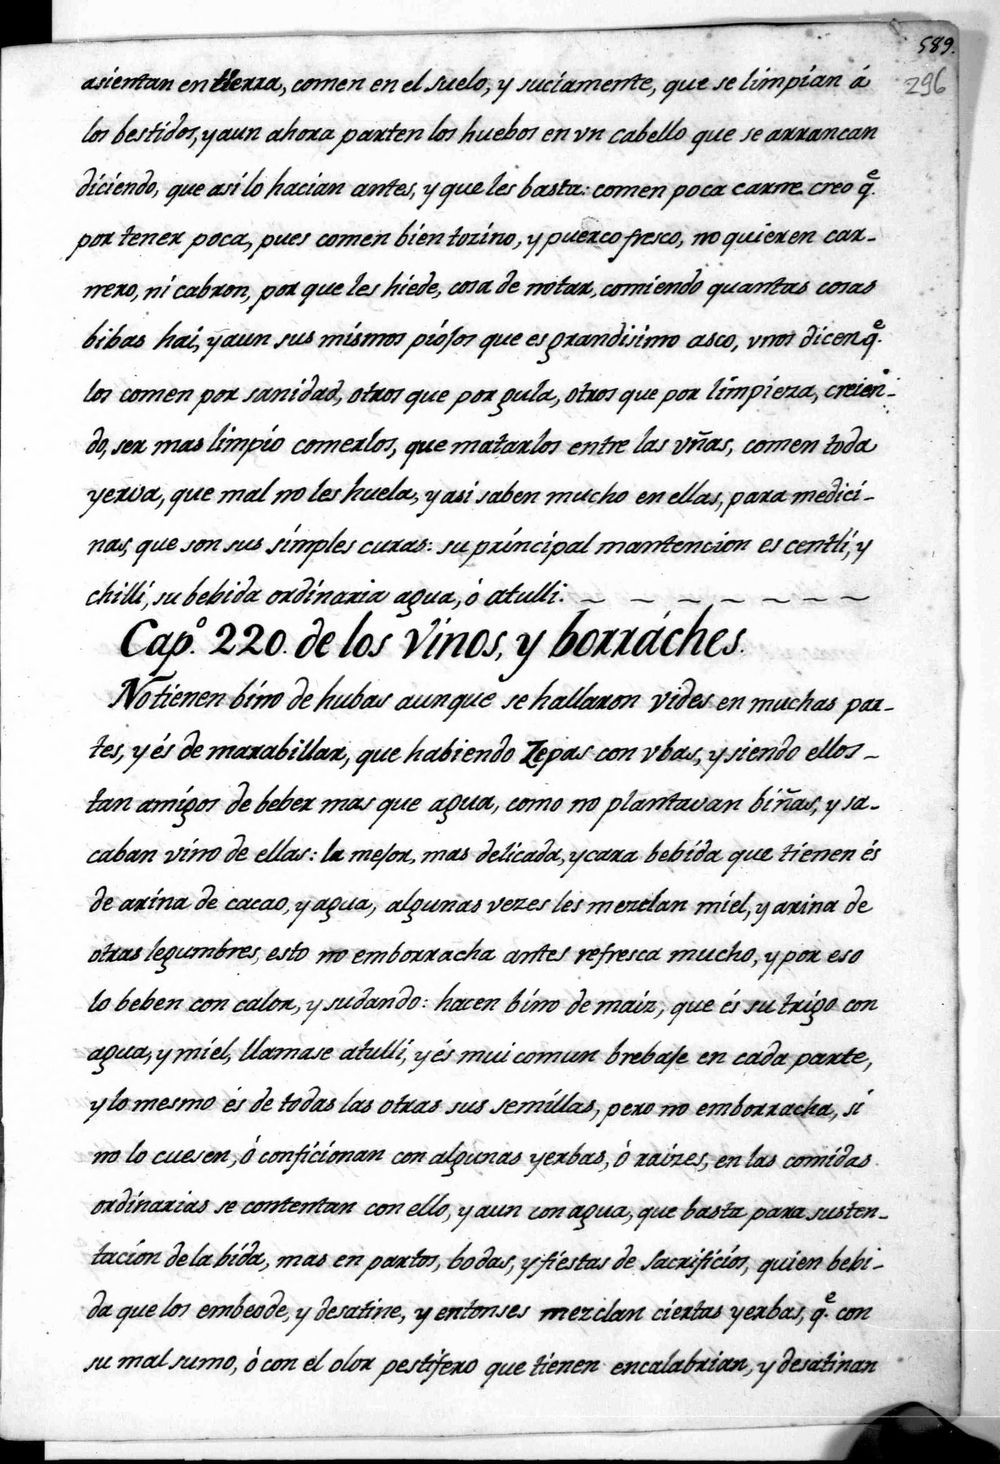 589.
296
asientan en tierra, comen en el suelo, y suciamente, que se limpian á
los bestidos, y aun ahora parten los huebos en vn cabello que se arrancan
diciendo, que asi lo hacian antes, y que les basta: comen poca carne creo q.e
por tener poca, pues comen bien tozino, y puerco fresco, no quieren car-
nero, ni cabron, por que les hiede, cosa de notar, comiendo quantas cosas
bibas hai, y aun sus mismos piojos que es grandisimo asco, vnos dicen q.e
los comen por sanidad, otros que por gula, otros que por limpieza, creien-
do, ser mas limpio comerlos, que matarlos entre las vñas, comen toda
yerva, que mal no les huela, y asi saben mucho en ellas, para medici-
nas, que son sus simples curas: su principal mantencion es centli, y
chilli, su bebida ordinaria agua, ó atulli. ~ ~ ~ ~ ~ ~ ~
Cap.o 220. de los Vinos, y borráches.
No tienen bino de hubas aunque se hallaron vides en muchas par-
tes, y és de marabillar, que habiendo Zepas con vbas, y siendo ellos -
tan amigos de beber mas que agua, como no plantavan biñas, y sa-
caban vino de ellas: la mejor, mas delicada, y cara bebida que tienen és
de arina de cacao, y agua, algunas vezes les mezclan miel, y arina de
otras legumbres, esto no emborracha antes refresca mucho, y por eso
lo beben con calor, y sudando: hacen bino de maiz, que és su trigo con
agua, y miel, llamase atulli, y és mui comun brebaje en cada parte,
y lo mesmo és de todas las otras sus semillas, pero no emborracha, si
no lo cuesen, ó conficionan con algunas yerbas, ó raizes, en las comidas
ordinarias se contentan con ello, y aun con agua, que basta para susten-
tacion de la bida, mas en partos, bodas, y fiestas de sacrificios, quien bebi-
da que los embeode, y desatine, y entonses mezclan ciertas yerbas, q.e con
su mal sumo, ó con el olor pestifero que tienen encalabrian, y desatinan